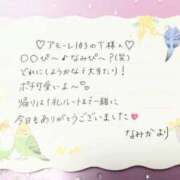 ♡アモーレ103のT様へ♡
○○ぴ〜♪なみぴ〜?(笑)
どれにしようかな?大きたり!
ポチ可愛いよ〜♡
帰りは1礼ルートまで一緒に
今日もありがとうございました♥
なみかより